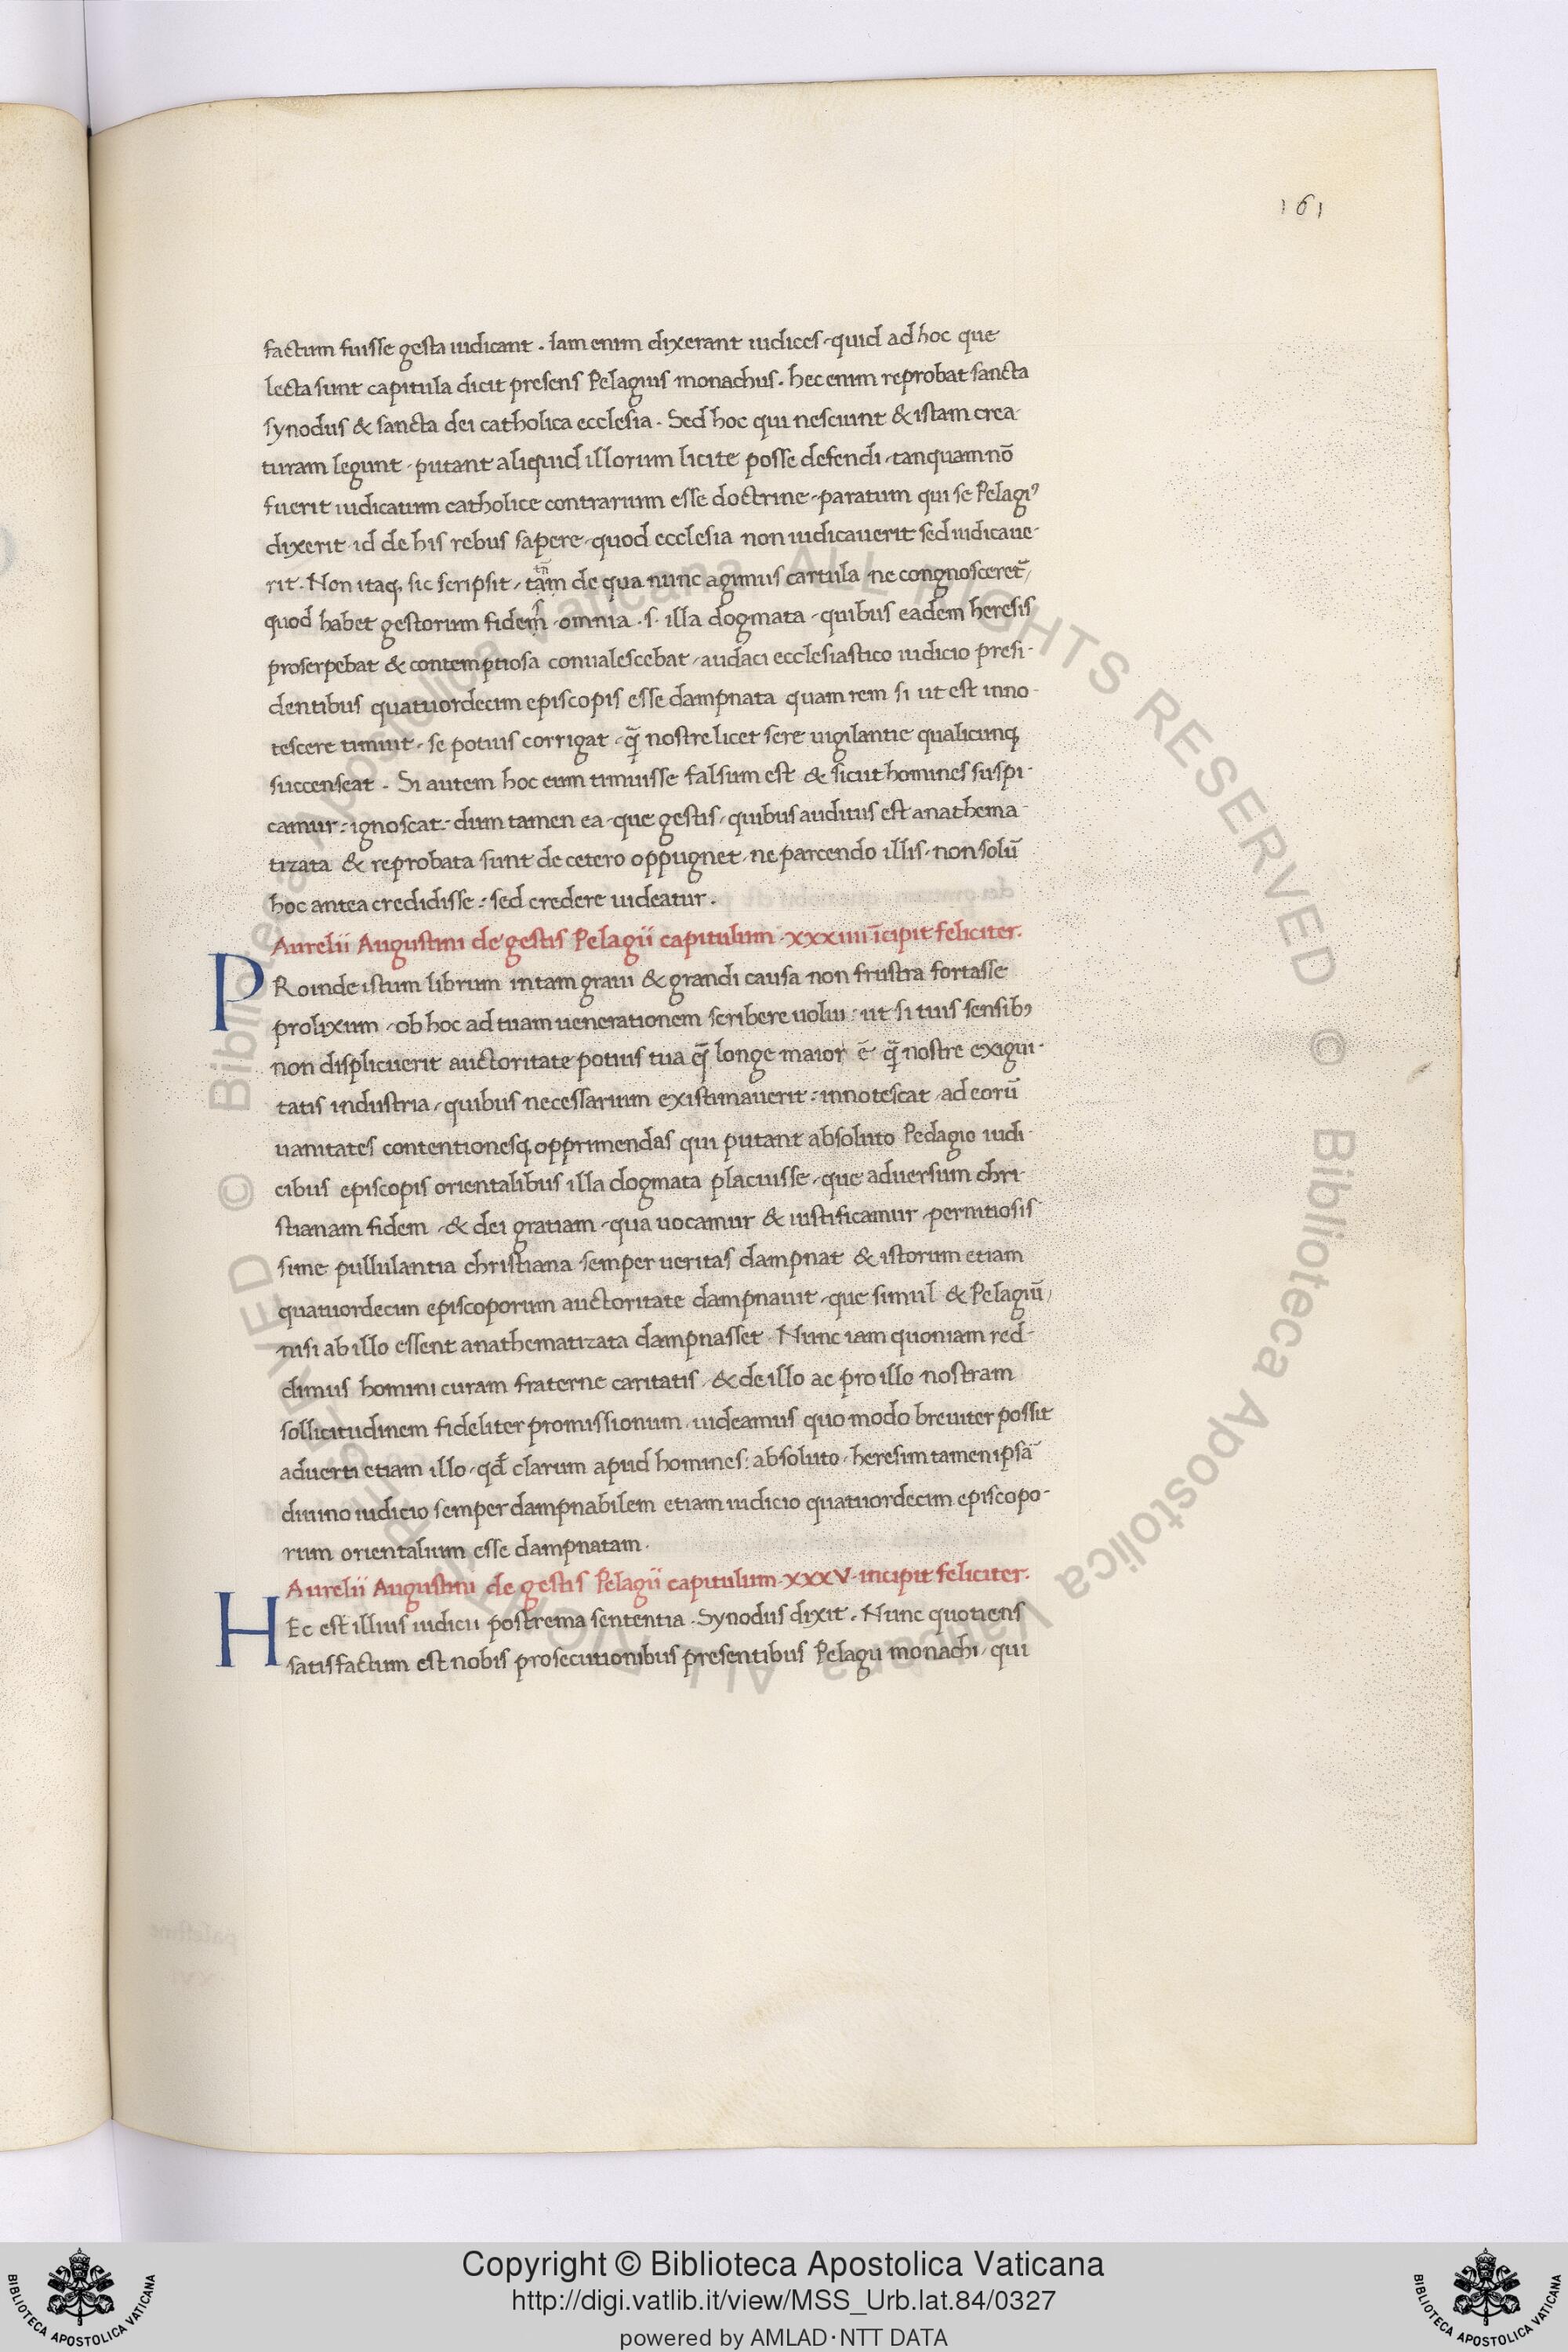 161
factum fuisse gesta iudicant. Iam enim dixerant iudices, quid ad hoc que
lecta sunt capitula dicit presens Pelagius monachus. hec enim reprobat sancta
synodus & sancta dei catholica ecclesia. Sed hoc qui nesciunt & istam crea-
turam legunt, putant aliquid illorum licite posse defendi, tanquam nō
fuerit iudicatum catholice contrarium esse doctrine, paratum qui se Pelagiꝰ
dixerit id de his rebus sapere, quod ecclesia non iudicauerit sed iudicaue-
rit. Non itaq; sic scripsit, tam de qua nunc agimus cartula ne congnosceret̃,
quod habet gestorum fidem, omnia .s. illa dogmata, quibus eadem heresis
proserpebat & contemptiosa conualescebat, audaci ecclesiastico iudicio presi-
dentibus quatuordecim episcopis esse dampnata quam rem si ut est inno-
tescere timuit, se potius corrigat, q̄ nostre licet sere uigilantie qualicunq;
succenseat. Si autem hoc eum timuisse falsum est & sicut homines suspi-
camur: ignoscat: dum tamen ea que gestis, quibus auditus est anathema-
tizata & reprobata sunt de cetero oppugnet, ne parcendo illis, non solū
hoc antea credidisse: sed credere uideatur.
Aurelii Augustini de gestis Pelagii capitulum .xxxiiii īcipit feliciter.
PRoinde istum librum in tam graui & grandi causa non frustra fortasse
prolixum, ob hoc ad tuam uenerationem scribere uolui: ut si tuis sensibꝰ
non displicuerit auctoritate potius tua q̄ longe maior ē q̄ nostre exigui-
tatis industria, quibus necessarium existimauerit: innotescat, ad eorū
uanitates contentionesq; opprimendas qui putant absoluto Pedagio iudi-
cibus episcopis orientalibus illa dogmata placuisse, que aduersum chri-
stianam fidem, & dei gratiam, qua uocamur & iustificamur, pernitiosis-
sime pullulantia christiana semper ueritas dampnat & istorum etiam
quatuordecim episcoporum auctoritate dampnauit, que simul & Pelagiū,
nisi ab illo essent anathematizata dampnasset. Nunc iam quoniam red-
dimus homini curam fraterne caritatis, & de illo ac pro illo nostram
sollicitudinem fideliter promissionum, uideamus quo modo breuiter possit
aduerti etiam illo, qđ clarum apud homines: absoluto, heresim tamen ipsā
diuino iudicio semper dampnabilem etiam iudicio quatuordecim episcopo-
rum orientalium esse dampnatam.
Aurelii Augustini de gestis Pelagii capitulum .XXXV. incipit feliciter.
HEc est illius iudicii postrema sententia. Synodus dixit. Nunc quotiens
satisfactum est nobis prosecutionibus presentibus Pelagii monachi, qui
Copyright © Biblioteca Apostolica Vaticana
http://digi.vatlib.it/view/MSS_Urb.lat.84/0327
powered by AMLAD·NTT DATA